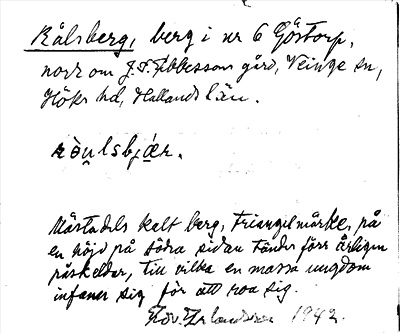 Kålsberg, berg i nr 6 Göstorp,
norr om J. P. Ebbessons gård, Veinge sn,
Höks hd, Hallands län.
kòu̯lsbjær.
Mästadels kalt berg, triangelmärke, på
en höjd på södra sidan tändes förr årligen
påskeldar, till vilka en massa ungdom
infaner sig för att roa sig.
1942.